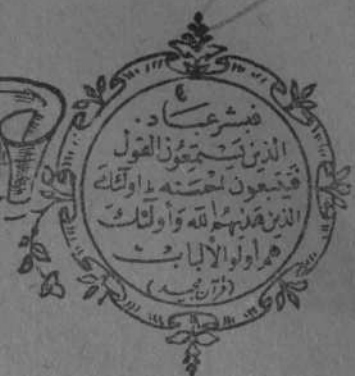 ٤
فبشر عباد:
الذين يستمعون القول
فيتبعون احسنه ط اولئك
الذين هدىهم الله واولئك
هم اولو الالباب
(قرآن مجيد)